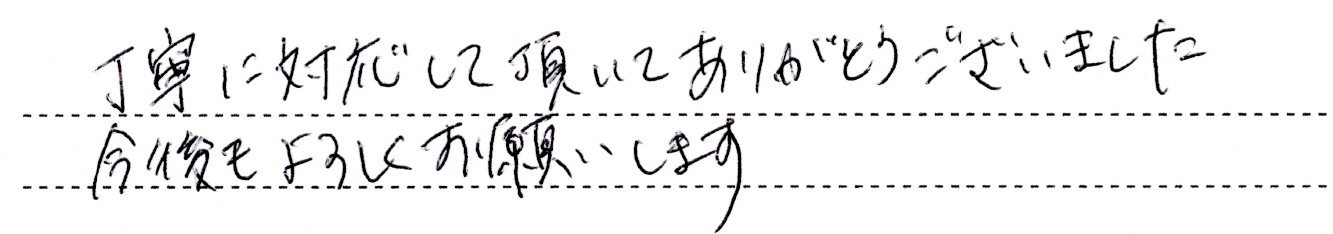 丁寧に対応して頂いてありがとうございました
今後もよろしくお願いします